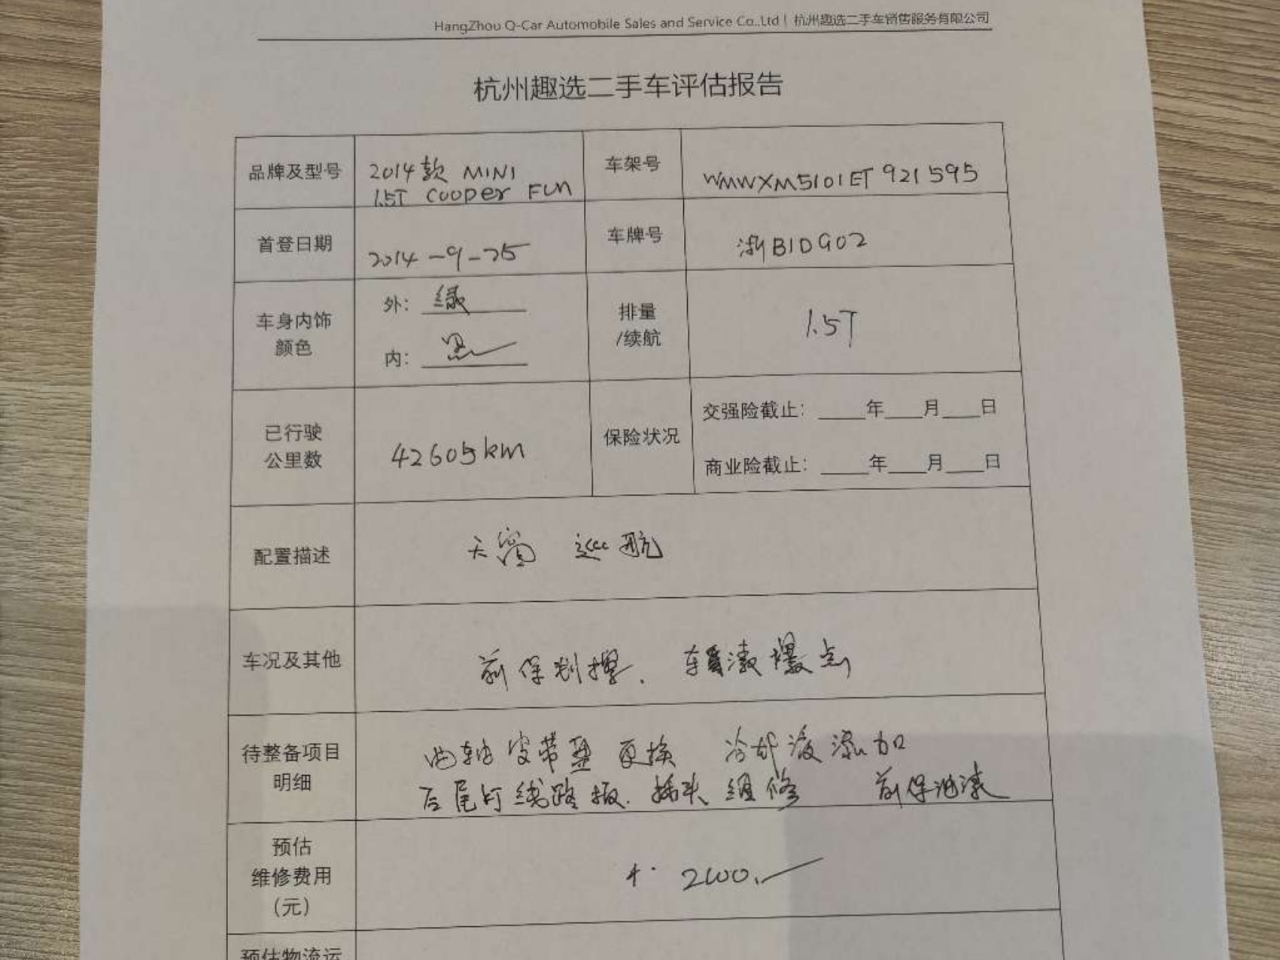 HangZhou Q-Car Automobile Sales and Service Co.,Ltd | 杭州趣选二手车销售服务有限公司
杭州趣选二手车评估报告
品牌及型号
2014款 MINI
1.5T Cooper Fun
车架号
WMWXM5101ET921595
首登日期
2014-9-25
车牌号
浙B1D902
车身内饰
颜色
外: 绿
内: 黑
排量
/续航
1.5T
已行驶
公里数
42605km
保险状况
交强险截止: ____年____月____日
商业险截止: ____年____月____日
配置描述
天窗 巡航
车况及其他
前保划擦、车漆爆点
待整备项目
明细
曲轴皮带盘更换 冷却液添加
后尾灯线路板、插头维修 前保油漆
预估
维修费用
(元)
2600.
预估物流运